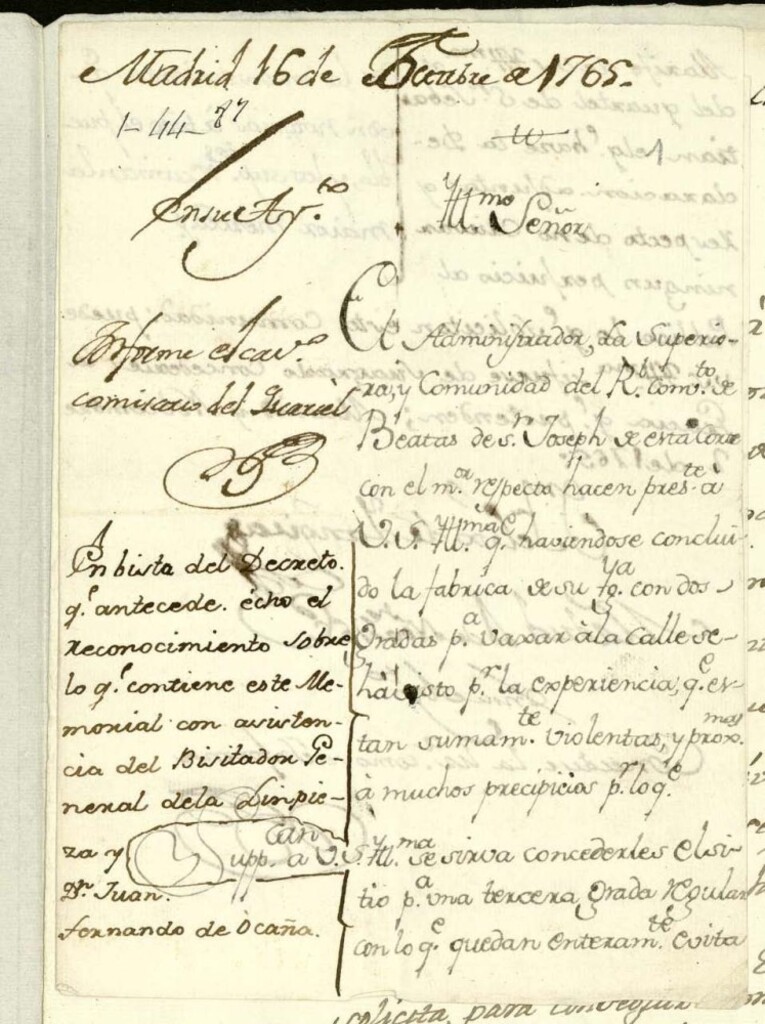 Madrid 16 de Octubre de 1765.
1-44-87
1
En su Ay.to
Yll.mo Señor
Informe el cav.o
comisario del Quartel
El Administrador, La Superio-
ra, y Comunidad del R.l Comb.to de
Beatas de S.r Joseph de esta Corte
con el m.or respecto hacen pres.te à
V.S. Yll.ma q.e haviendose conclui-
do la fabrica de su Yg.ya con dos
Gradas p.a vaxar à la Calle se-
hà visto p.r la experiencia, q.e es-
tan sumam.te violentas, y prox.mas
à muchos precipicios p.r lo q.e
Supp.can a V.S. Yll.ma se sirva concederles el si-
tio p.a una tercera Grada regular
con lo q.e quedan enteram.te evita
En bista del Decreto.
q.e antecede. echo el
reconocimiento sobre
lo q.e contiene este Me-
morial con asisten-
cia del Bisitador Ge-
neral de la Linpie-
za y
D.n Juan.
fernando de Ocaña.
solicita, para conseguir